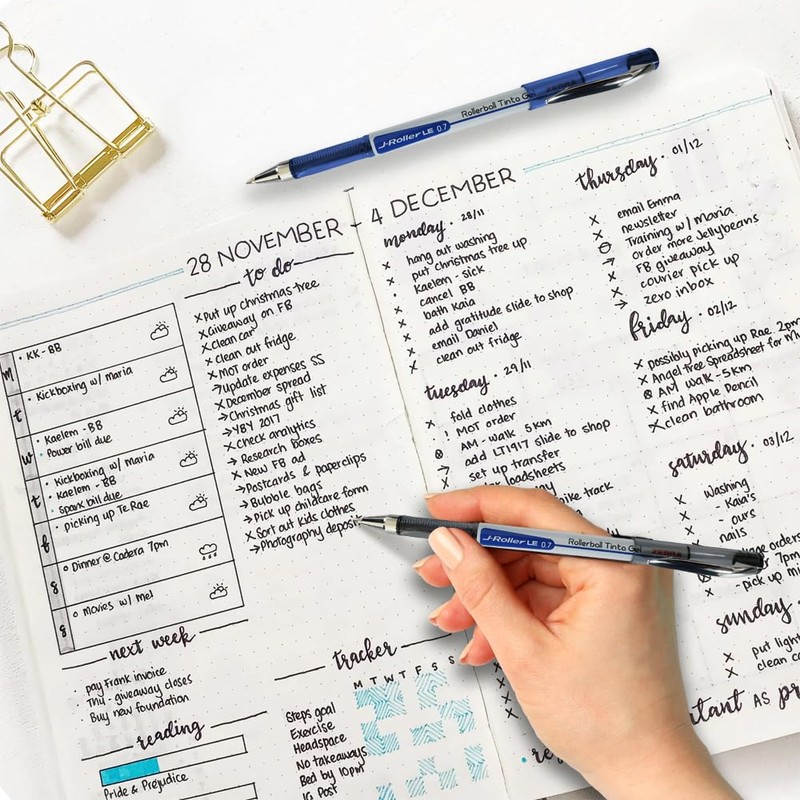 J-Roller LE 0.7 Rollerball Tinta Gel ZEBRA
28 NOVEMBER - 4 DECEMBER
M
• KK - BB
t
• Kickboxing w/ maria
w
• Kaelem - BB
• Power bill due
t
• Kickboxing w/ Maria
• Kaelem - BB
• Spark bill due
f
• picking up Te Rae
s
o Dinner @ Cadera 7pm
s
o movies w/ Mel
to do
x Put up Christmas tree
x Giveaway on FB
x Clean car
x Clean out fridge
x MOT order
→ Update expenses SS
x December spread
→ Christmas gift list
→ YBY 2017
x Check analytics
→ Research boxes
x New FB ad
→ Postcards & paperclips
→ Bubble bags
→ Pick up childcare form
x Sort out kids clothes
→ Photography deposit
next week
• pay Frank invoice
• Thu - giveaway closes
• Buy new foundation
reading
Pride & Prejudice
tracker
M T W T F S S
Steps goal
Exercise
Headspace
No takeaways
Bed by 10pm
IG Post
monday • 28/11
x hang out washing
x put christmas tree up
• Kaelem - sick
x cancel BB
x bath Kaia
x add gratitude slide to shop
x email Daniel
x clean out fridge
tuesday • 29/11
x fold clothes
! MOT order
⊗ AM - walk 5km
x add LT1917 slide to shop
→ set up transfer
loadsheets
bike track
thursday • 01/12
x email Emma
x newsletter
⊖ Training w/ Maria
→ order more Jellybeans
x FB giveaway
x courier pick up
→ zero inbox
friday • 02/12
x possibly picking up Rae 2pm
x Angel tree Spreadsheet for
⊗ AM walk - 5km
x find Apple Pencil
x clean bathroom
saturday • 03/12
x washing
x - Kaia's
x - ours
x nails
orders
7pm
- pick up
J-Roller LE 0.7 Rollerball Tinta Gel ZEBRA
sunday
x put
x clean
AS